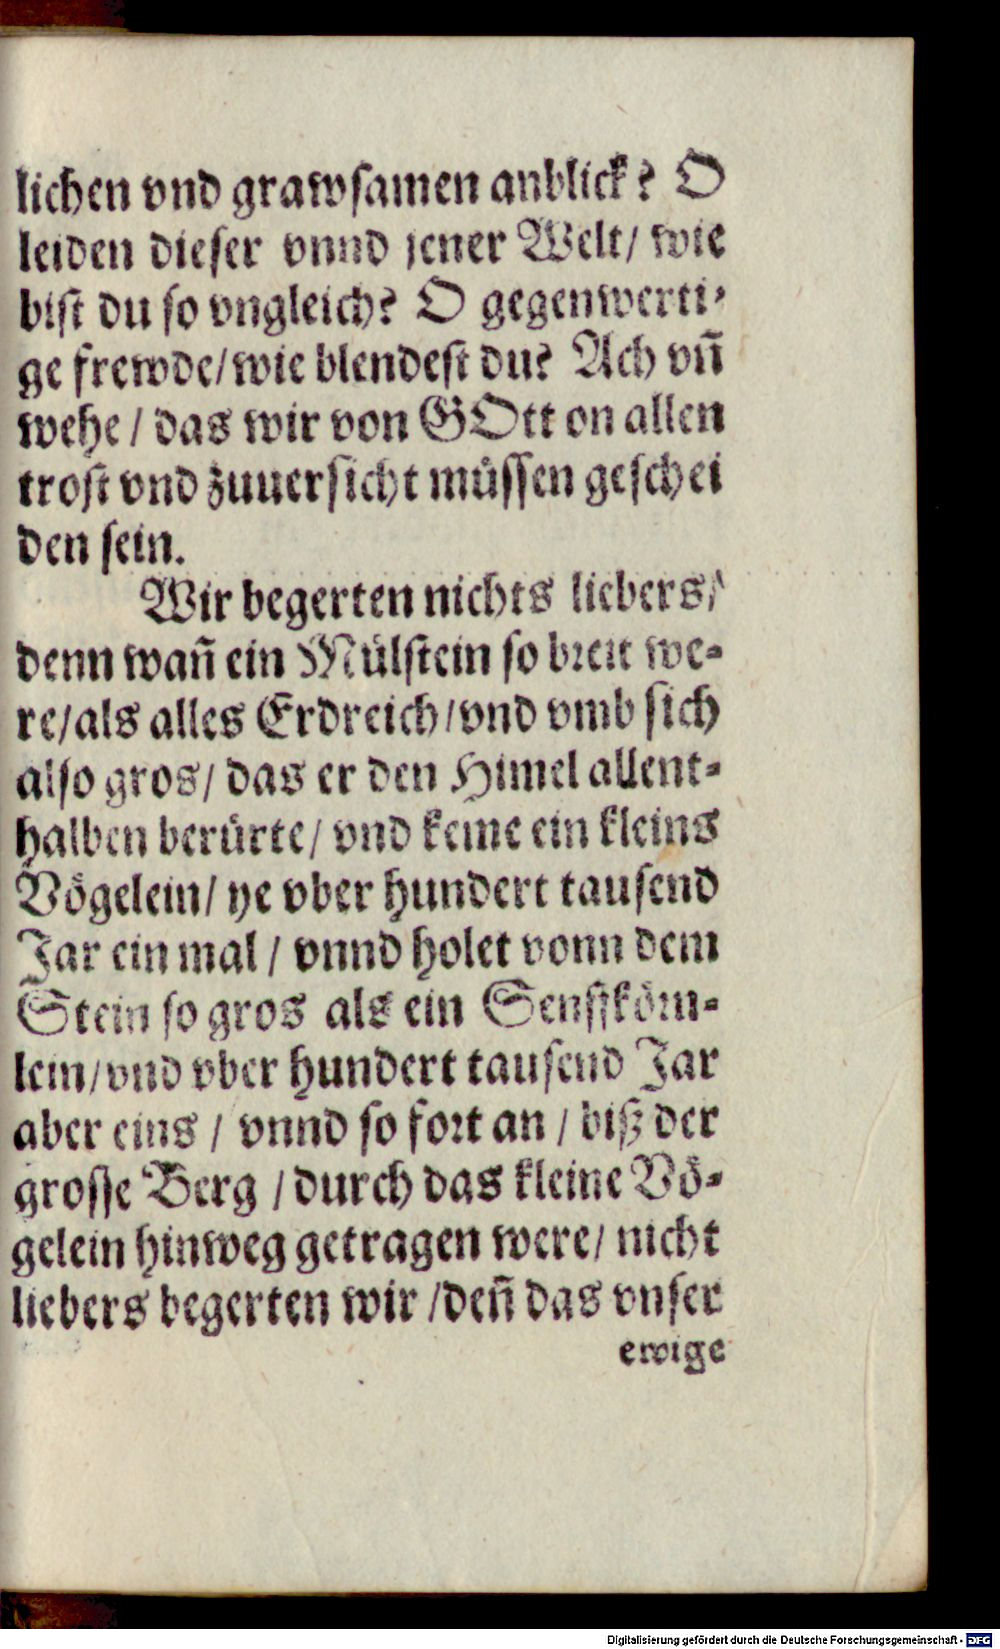 lichen vnd grawsamen anblick? O
leiden dieser vnnd jener Welt/ wie
bist du so vngleich? O gegenwerti-
ge frewde/ wie blendest du? Ach vñ
wehe / das wir von GOtt on allen
trost vnd zuuersicht müssen geschei
den sein.
Wir begerten nichts liebers/
denn wañ ein Mülstein so breit we-
re/als alles Erdreich/vnd vmb sich
also gros/ das er den Himel allent-
halben berürte/ vnd keme ein kleins
Vögelein/ ye vber hundert tausend
Jar ein mal / vnnd holet vonn dem
Stein so gros als ein Senffkörn-
lein/vnd vber hundert tausend Jar
aber eins / vnnd so fort an / biß der
grosse Berg / durch das kleine Vö-
gelein hinweg getragen were/ nicht
liebers begerten wir /deñ das vnser
ewige
Digitalisierung gefördert durch die Deutsche Forschungsgemeinschaft - DFG